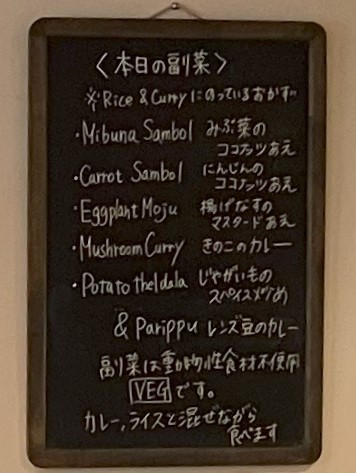 〈本日の副菜〉
※Rice & Curryにのっているおかず
・Mibuna Sambol みぶ菜の
ココナッツあえ
・Carrot Sambol にんじんの
ココナッツあえ
・Eggplant Moju 揚げなすの
マスタードあえ
・Mushroom Curry きのこのカレー
・Potato theldala じゃがいもの
スパイス炒め
& Parippu レンズ豆のカレー
副菜は動物性食材不使用
VEGです。
カレー,ライスと混ぜながら
食べます